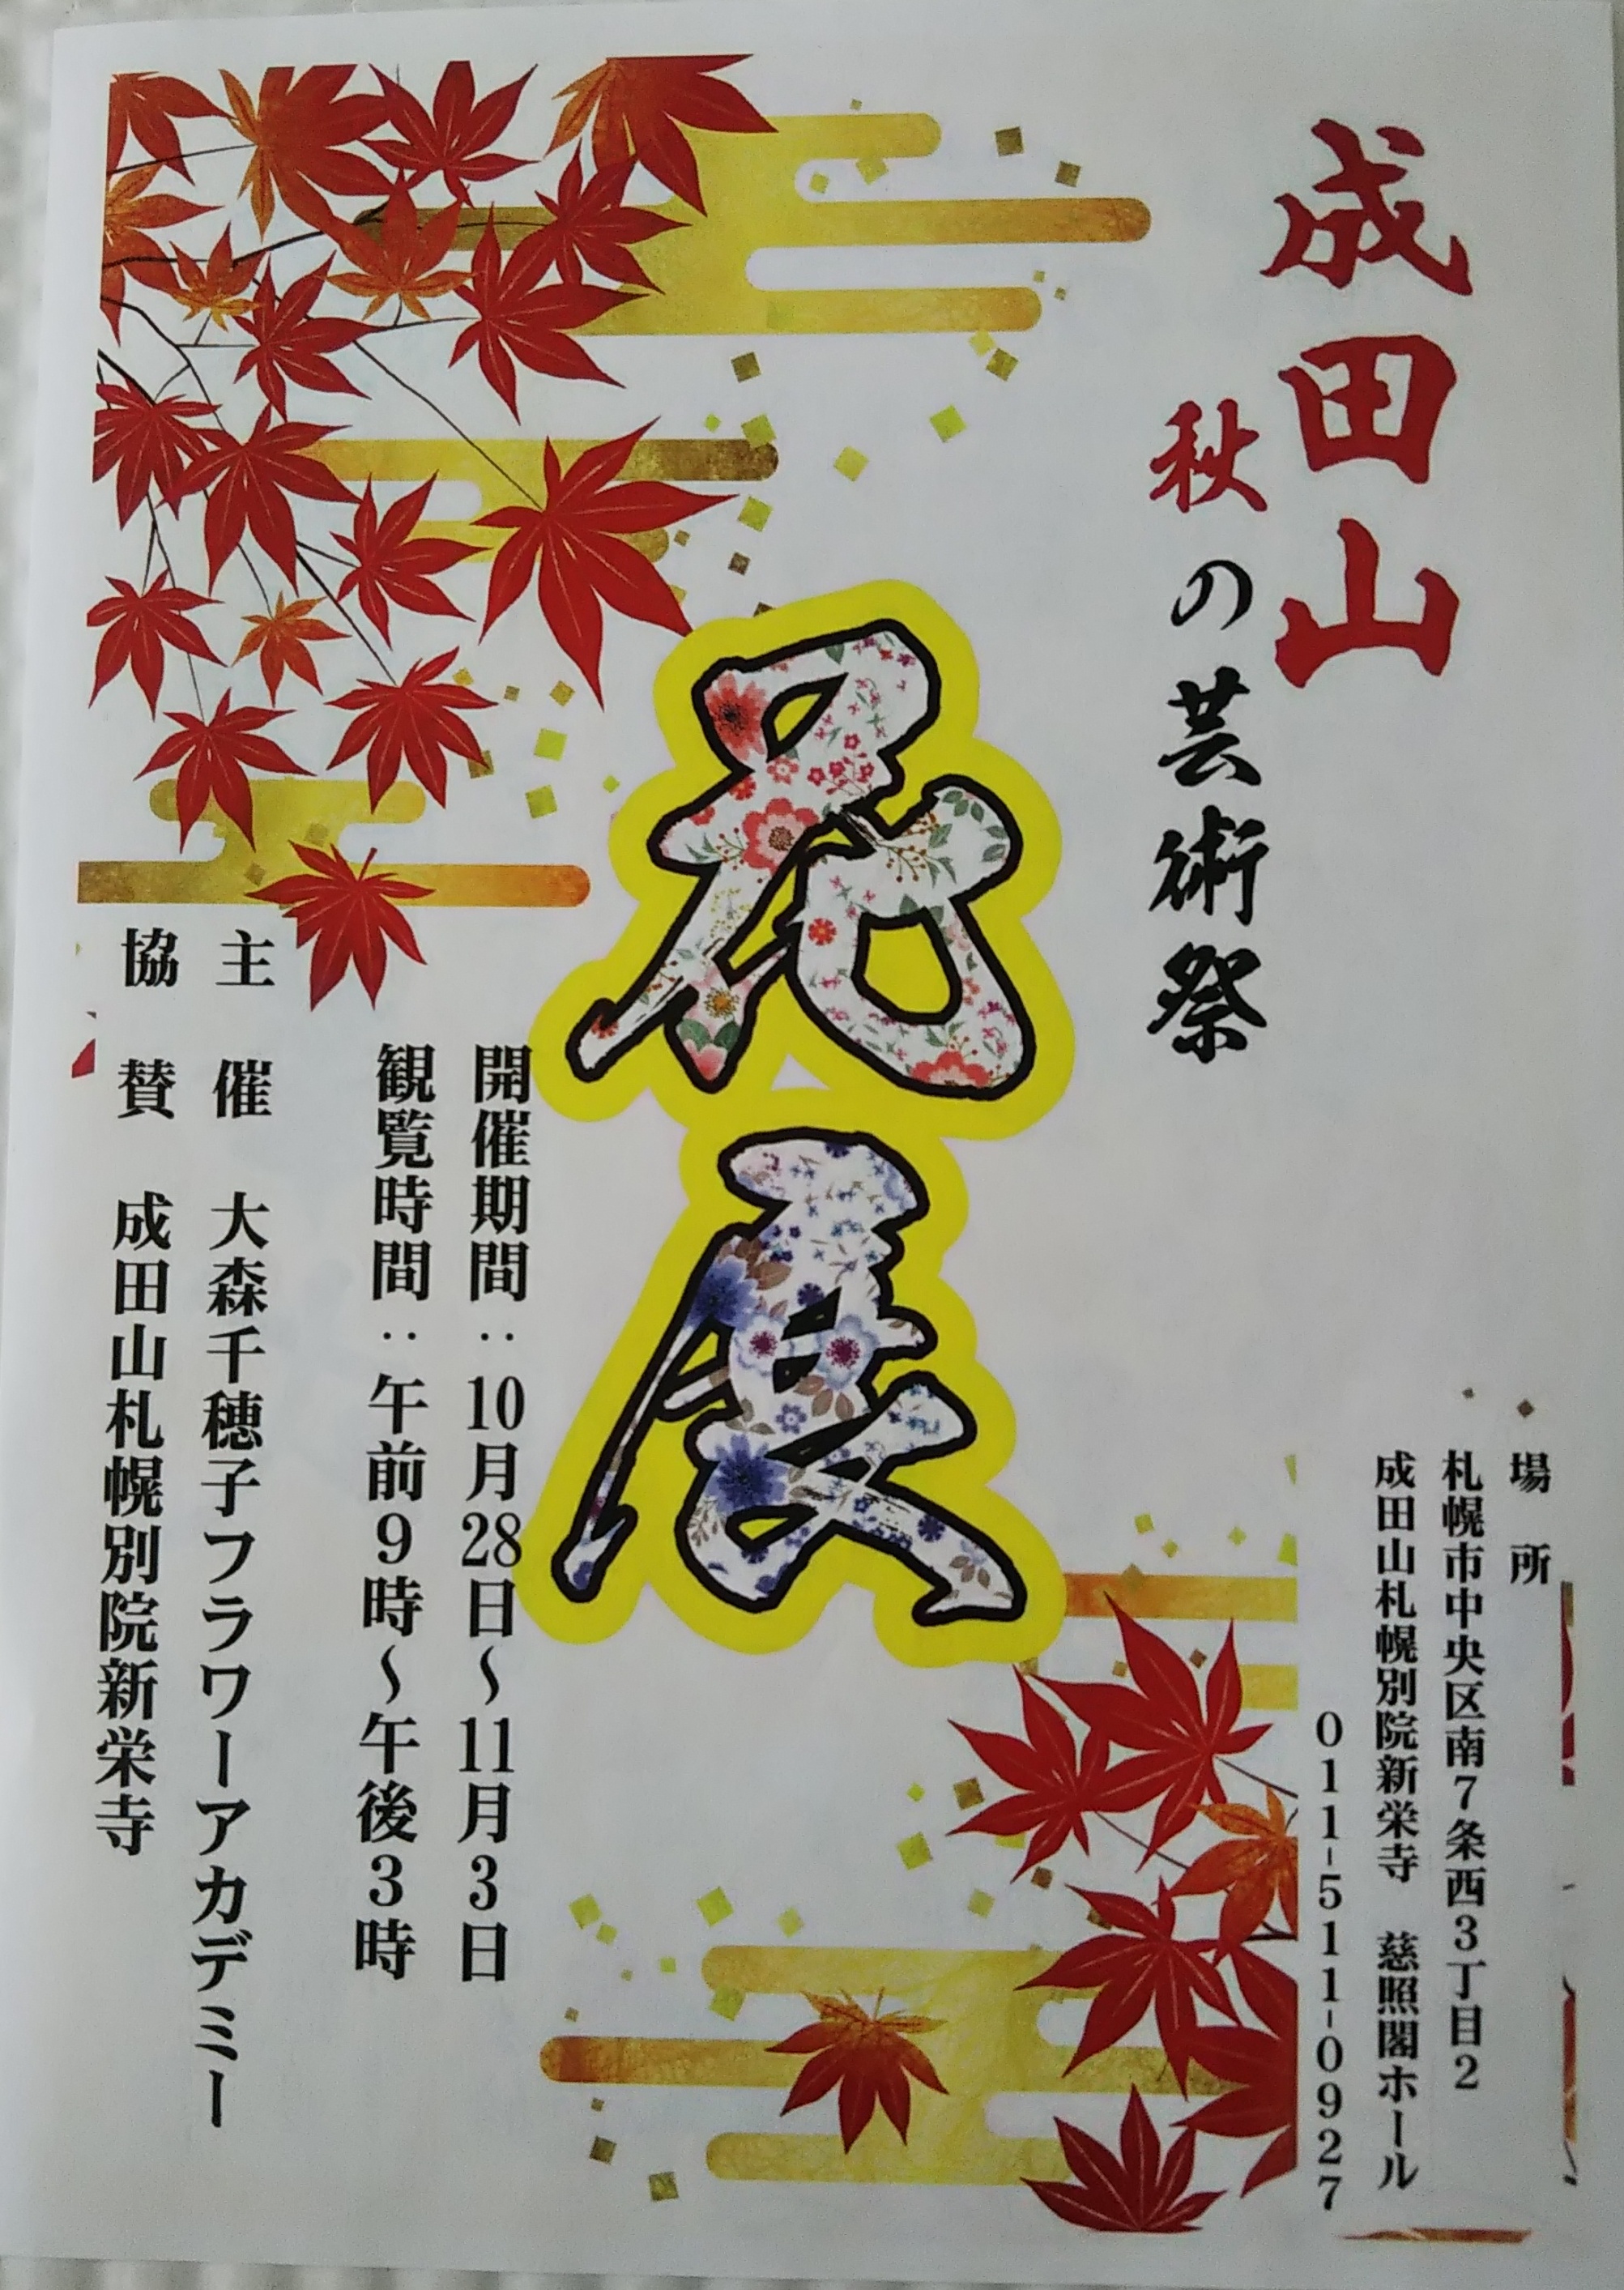 成田山
秋の芸術祭
花展
場所
札幌市中央区南7条西3丁目2
成田山札幌別院新栄寺 慈照閣ホール
011-511-0927
開催期間:10月28日~11月3日
観覧時間:午前9時~午後3時
主催 大森千穂子フラワーアカデミー
協賛 成田山札幌別院新栄寺